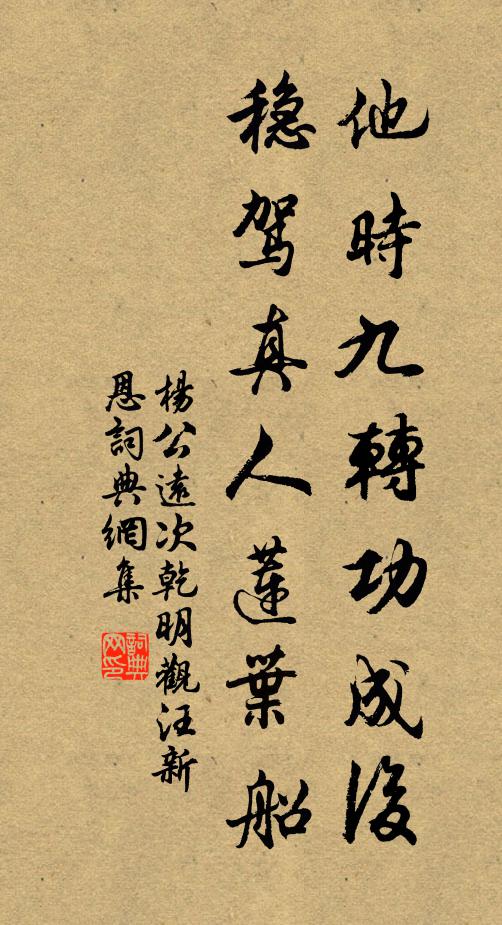 他時九轉功成後
穩駕真人蓮葉船
楊公遠次乾明觀汪新
恩詞典網集
詞典
网印